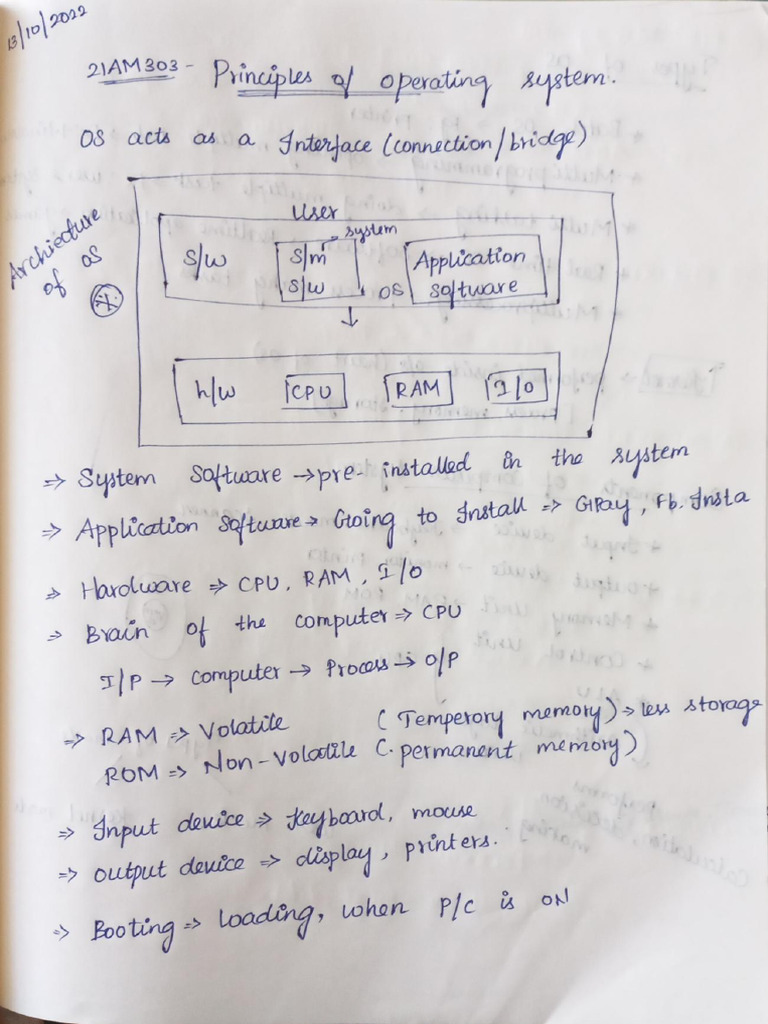 13/10/2022
21AM303 - Principles of operating system.
OS acts as a Interface (connection/bridge)
Archiecture
of OS
User
system
S/w
S/m
S/w
OS
Application
software
h/w
CPU
RAM
I/O
⇒ System Software → pre-installed in the system
⇒ Application Software → Going to Install ⇒ GPay, Fb. Insta
⇒ Hardware ⇒ CPU, RAM, I/O
⇒ Brain of the computer ⇒ CPU
I/P → computer → Process → O/P
⇒ RAM ⇒ Volatile (Temperory memory) → less storage
ROM ⇒ Non-Volatile (permanent memory)
⇒ Input device ⇒ Keyboard, mouse
⇒ output device ⇒ display, printers.
⇒ Booting ⇒ loading, when P/C is ON